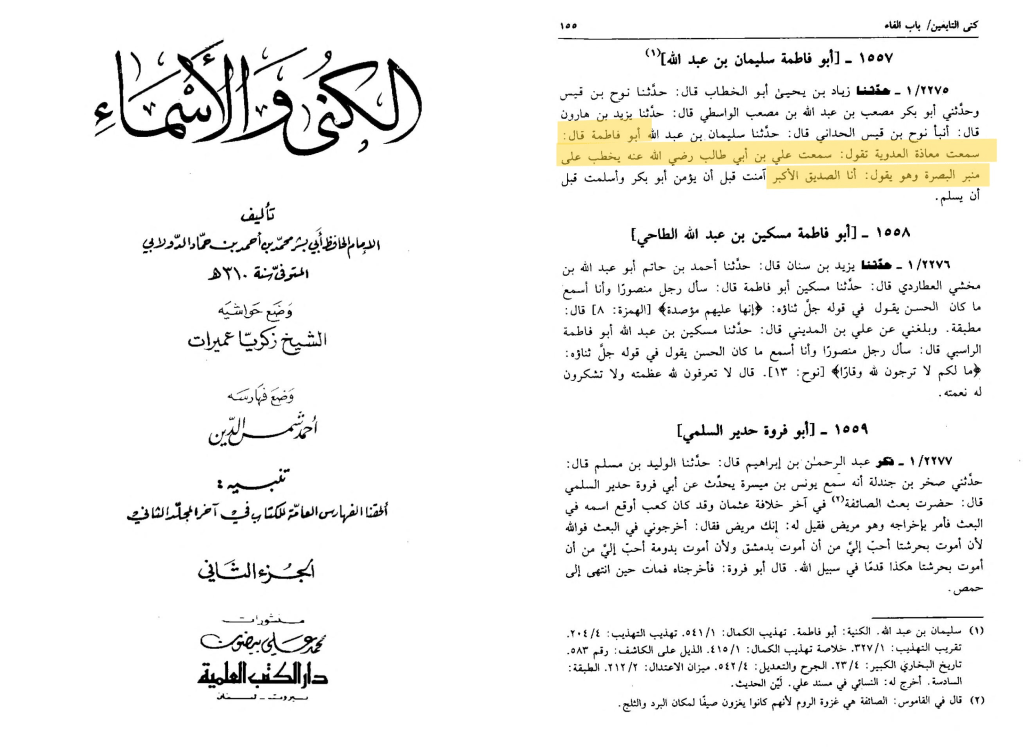 الكنى والأسماء
تأليف
الإمام الحافظ أبي بشر محمد بن أحمد بن حماد الدولابي
المتوفى سنة ٣١٠ هـ
وضع حواشيه
الشيخ زكريا عميرات
وضع فهارسه
أحمد شمس الدين
تنبيه :
ألحقنا الفهارس العامة للكتاب في آخر المجلد الثاني
الجزء الثاني
منشورات
محمد علي بيضون
دار الكتب العلمية
بيروت - لبنان
كنى التابعين/ باب الفاء ١٥٥
١٥٥٧ ـ [أبو فاطمة سليمان بن عبد الله](١)
١/٢٢٧٥ ـ حدّثنا زياد بن يحيىٰ أبو الخطاب قال: حدّثنا نوح بن قيس
وحدّثني أبو بكر مصعب بن عبد الله بن مصعب الواسطي قال: حدّثنا يزيد بن هارون
قال: أنبأ نوح بن قيس الحداني قال: حدّثنا سليمان بن عبد الله أبو فاطمة قال:
سمعت معاذة العدوية تقول: سمعت علي بن أبي طالب رضي الله عنه يخطب على
منبر البصرة وهو يقول: أنا الصديق الأكبر آمنت قبل أن يؤمن أبو بكر وأسلمت قبل
أن يسلم.
١٥٥٨ ـ [أبو فاطمة مسكين بن عبد الله الطاحي]
١/٢٢٧٦ ـ حدّثنا يزيد بن سنان قال: حدّثنا أحمد بن حاتم أبو عبد الله بن
مخشي العطاردي قال: حدّثنا مسكين أبو فاطمة قال: سأل رجل منصورًا وأنا أسمع
ما كان الحسن يقول في قوله جلّ ثناؤه: ﴿إنها عليهم مؤصدة﴾ [الهمزة: ٨] قال:
مطبقة. وبلغني عن علي بن المديني قال: حدّثنا مسكين بن عبد الله أبو فاطمة
الراسبي قال: سأل رجل منصورًا وأنا أسمع ما كان الحسن يقول في قوله جلّ ثناؤه:
﴿ما لكم لا ترجون لله وقارًا﴾ [نوح: ١٣]. قال لا تعرفون لله عظمته ولا تشكرون
له نعمته.
١٥٥٩ ـ [أبو فروة حدير السلمي]
١/٢٢٧٧ ـ ذكر عبد الرحمٰن بن إبراهيم قال: حدّثنا الوليد بن مسلم قال:
حدّثني صخر بن جندلة أنه سمع يونس بن ميسرة يحدّث عن أبي فروة حدير السلمي
قال: حضرت بعث الصائفة(٢) في آخر خلافة عثمان وقد كان كعب أوقع اسمه في
البعث فأمر بإخراجه وهو مريض فقيل له: إنك مريض فقال: أخرجوني في البعث فوالله
لأن أموت بحرشتا أحبّ إليّ من أن أموت بدمشق ولأن أموت بدومة أحبّ إليّ من أن
أموت بحرشتا هكذا قدمًا في سبيل الله. قال أبو فروة: فأخرجناه فمات حين انتهى إلى
حمص.
(١) سليمان بن عبد الله. الكنية: أبو فاطمة. تهذيب الكمال: ٥٤١/١. تهذيب التهذيب: ٢٠٤/٤.
تقريب التهذيب: ٣٢٧/١. خلاصة تهذيب الكمال: ٤١٥/١. الذيل على الكاشف: رقم ٥٨٣.
تاريخ البخاري الكبير: ٢٣/٤. الجرح والتعديل: ٥٤٢/٤. ميزان الاعتدال: ٢١٢/٢. الطبقة:
السادسة. أخرج له: النسائي في مسند علي. ليّن الحديث.
(٢) قال في القاموس: الصائفة هي غزوة الروم لأنهم كانوا يغزون صيفًا لمكان البرد والثلج.